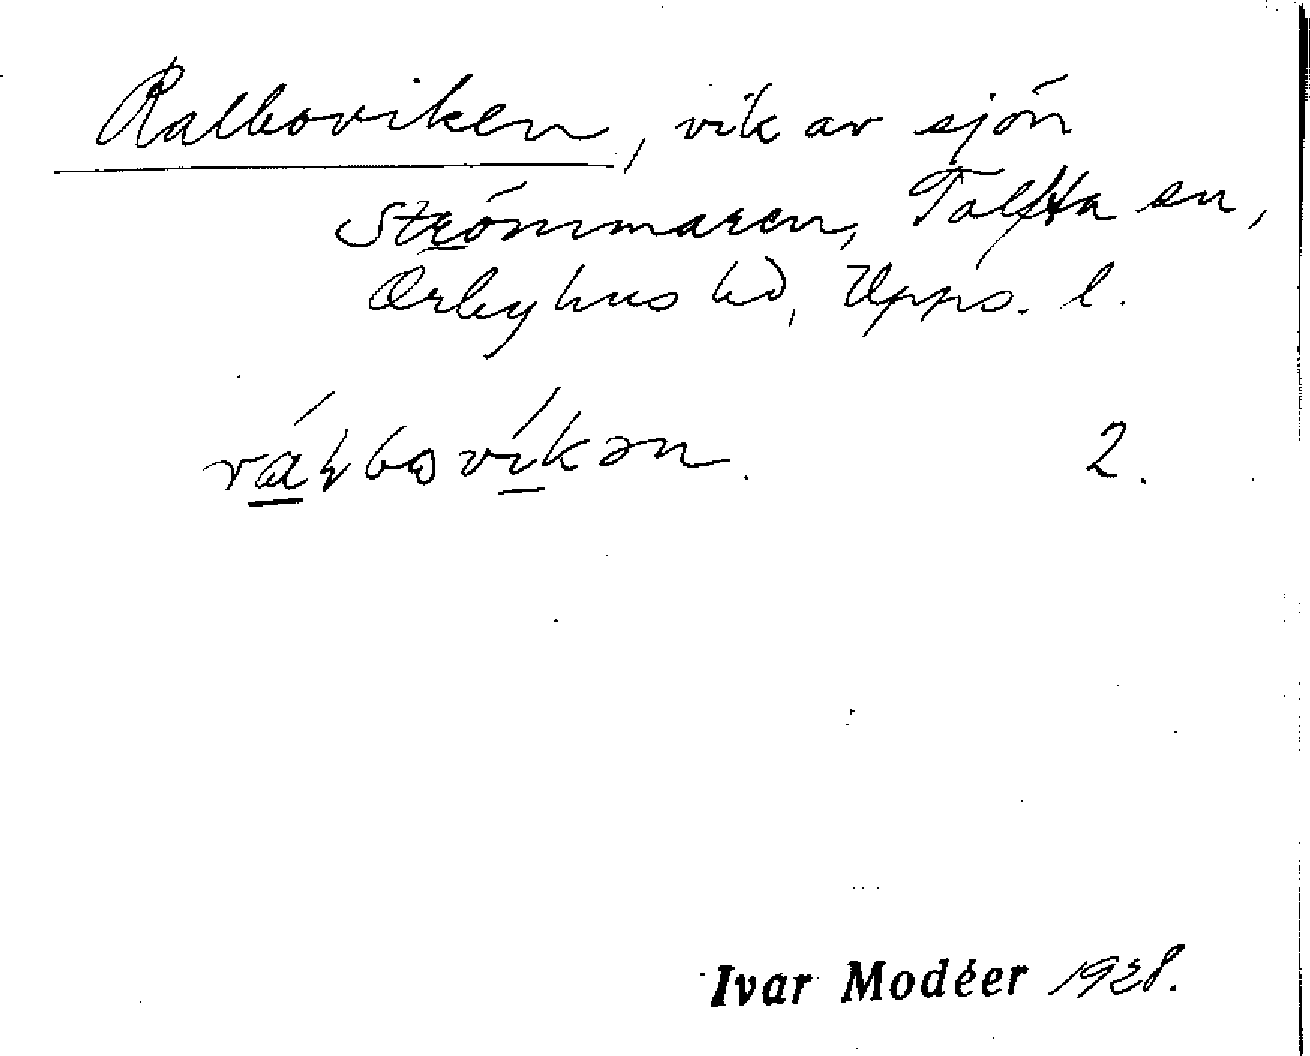 Ralboviken, vik av sjön
Strömmaren, Tolfta sn,
Örbyhus hd, Upps. l.
2.
Ivar Modéer 1928.